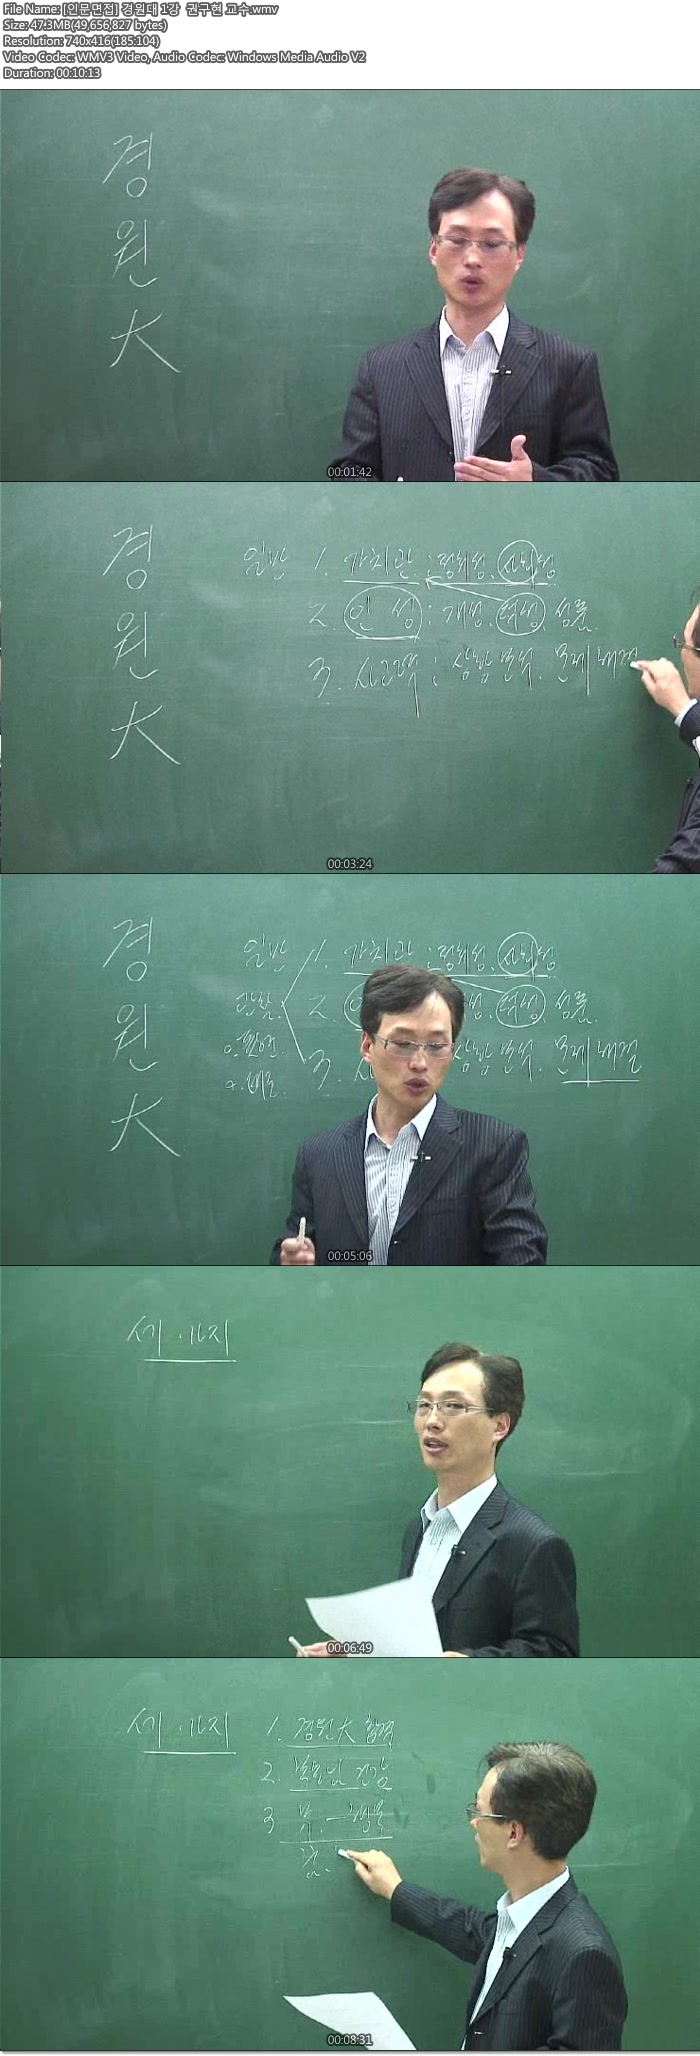 File Name: [인문면접] 경원대 1강  권구현 교수.wmv
Size: 47.3MB(49,656,827 bytes)
Resolution: 740x416(185:104)
Video Codec: WMV3 Video, Audio Codec: Windows Media Audio V2
Duration: 00:10:13
경
원
大
00:01:42
경
원
大
일반 1. 가치관 :
2. 인성 : 개성.
3. 사고력 : 상황 분석. 문제 해결
00:03:24
경
원
大
일반 1. 가치관 :
2.
3.
분석. 문제 해결
00:05:06
세 가지
00:06:49
세 가지
1. 경원大 합격
2. 부모님 건강
3
00:08:31